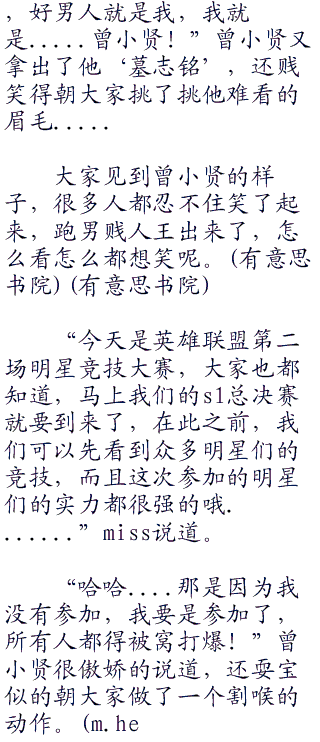 ，好男人就是我，我就
是.....曾小贤！”曾小贤又
拿出了他‘墓志铭’，还贱
笑得朝大家挑了挑他难看的
眉毛.....
大家见到曾小贤的样
子，很多人都忍不住笑了起
来，跑男贱人王出来了，怎
么看怎么都想笑呢。(有意思
书院)(有意思书院)
“今天是英雄联盟第二
场明星竞技大赛，大家也都
知道，马上我们的s1总决赛
就要到来了，在此之前，我
们可以先看到众多明星们的
竞技，而且这次参加的明星
们的实力都很强的哦.
......”miss说道。
“哈哈....那是因为我
没有参加，我要是参加了，
所有人都得被窝打爆！”曾
小贤很傲娇的说道，还耍宝
似的朝大家做了一个割喉的
动作。(m.he